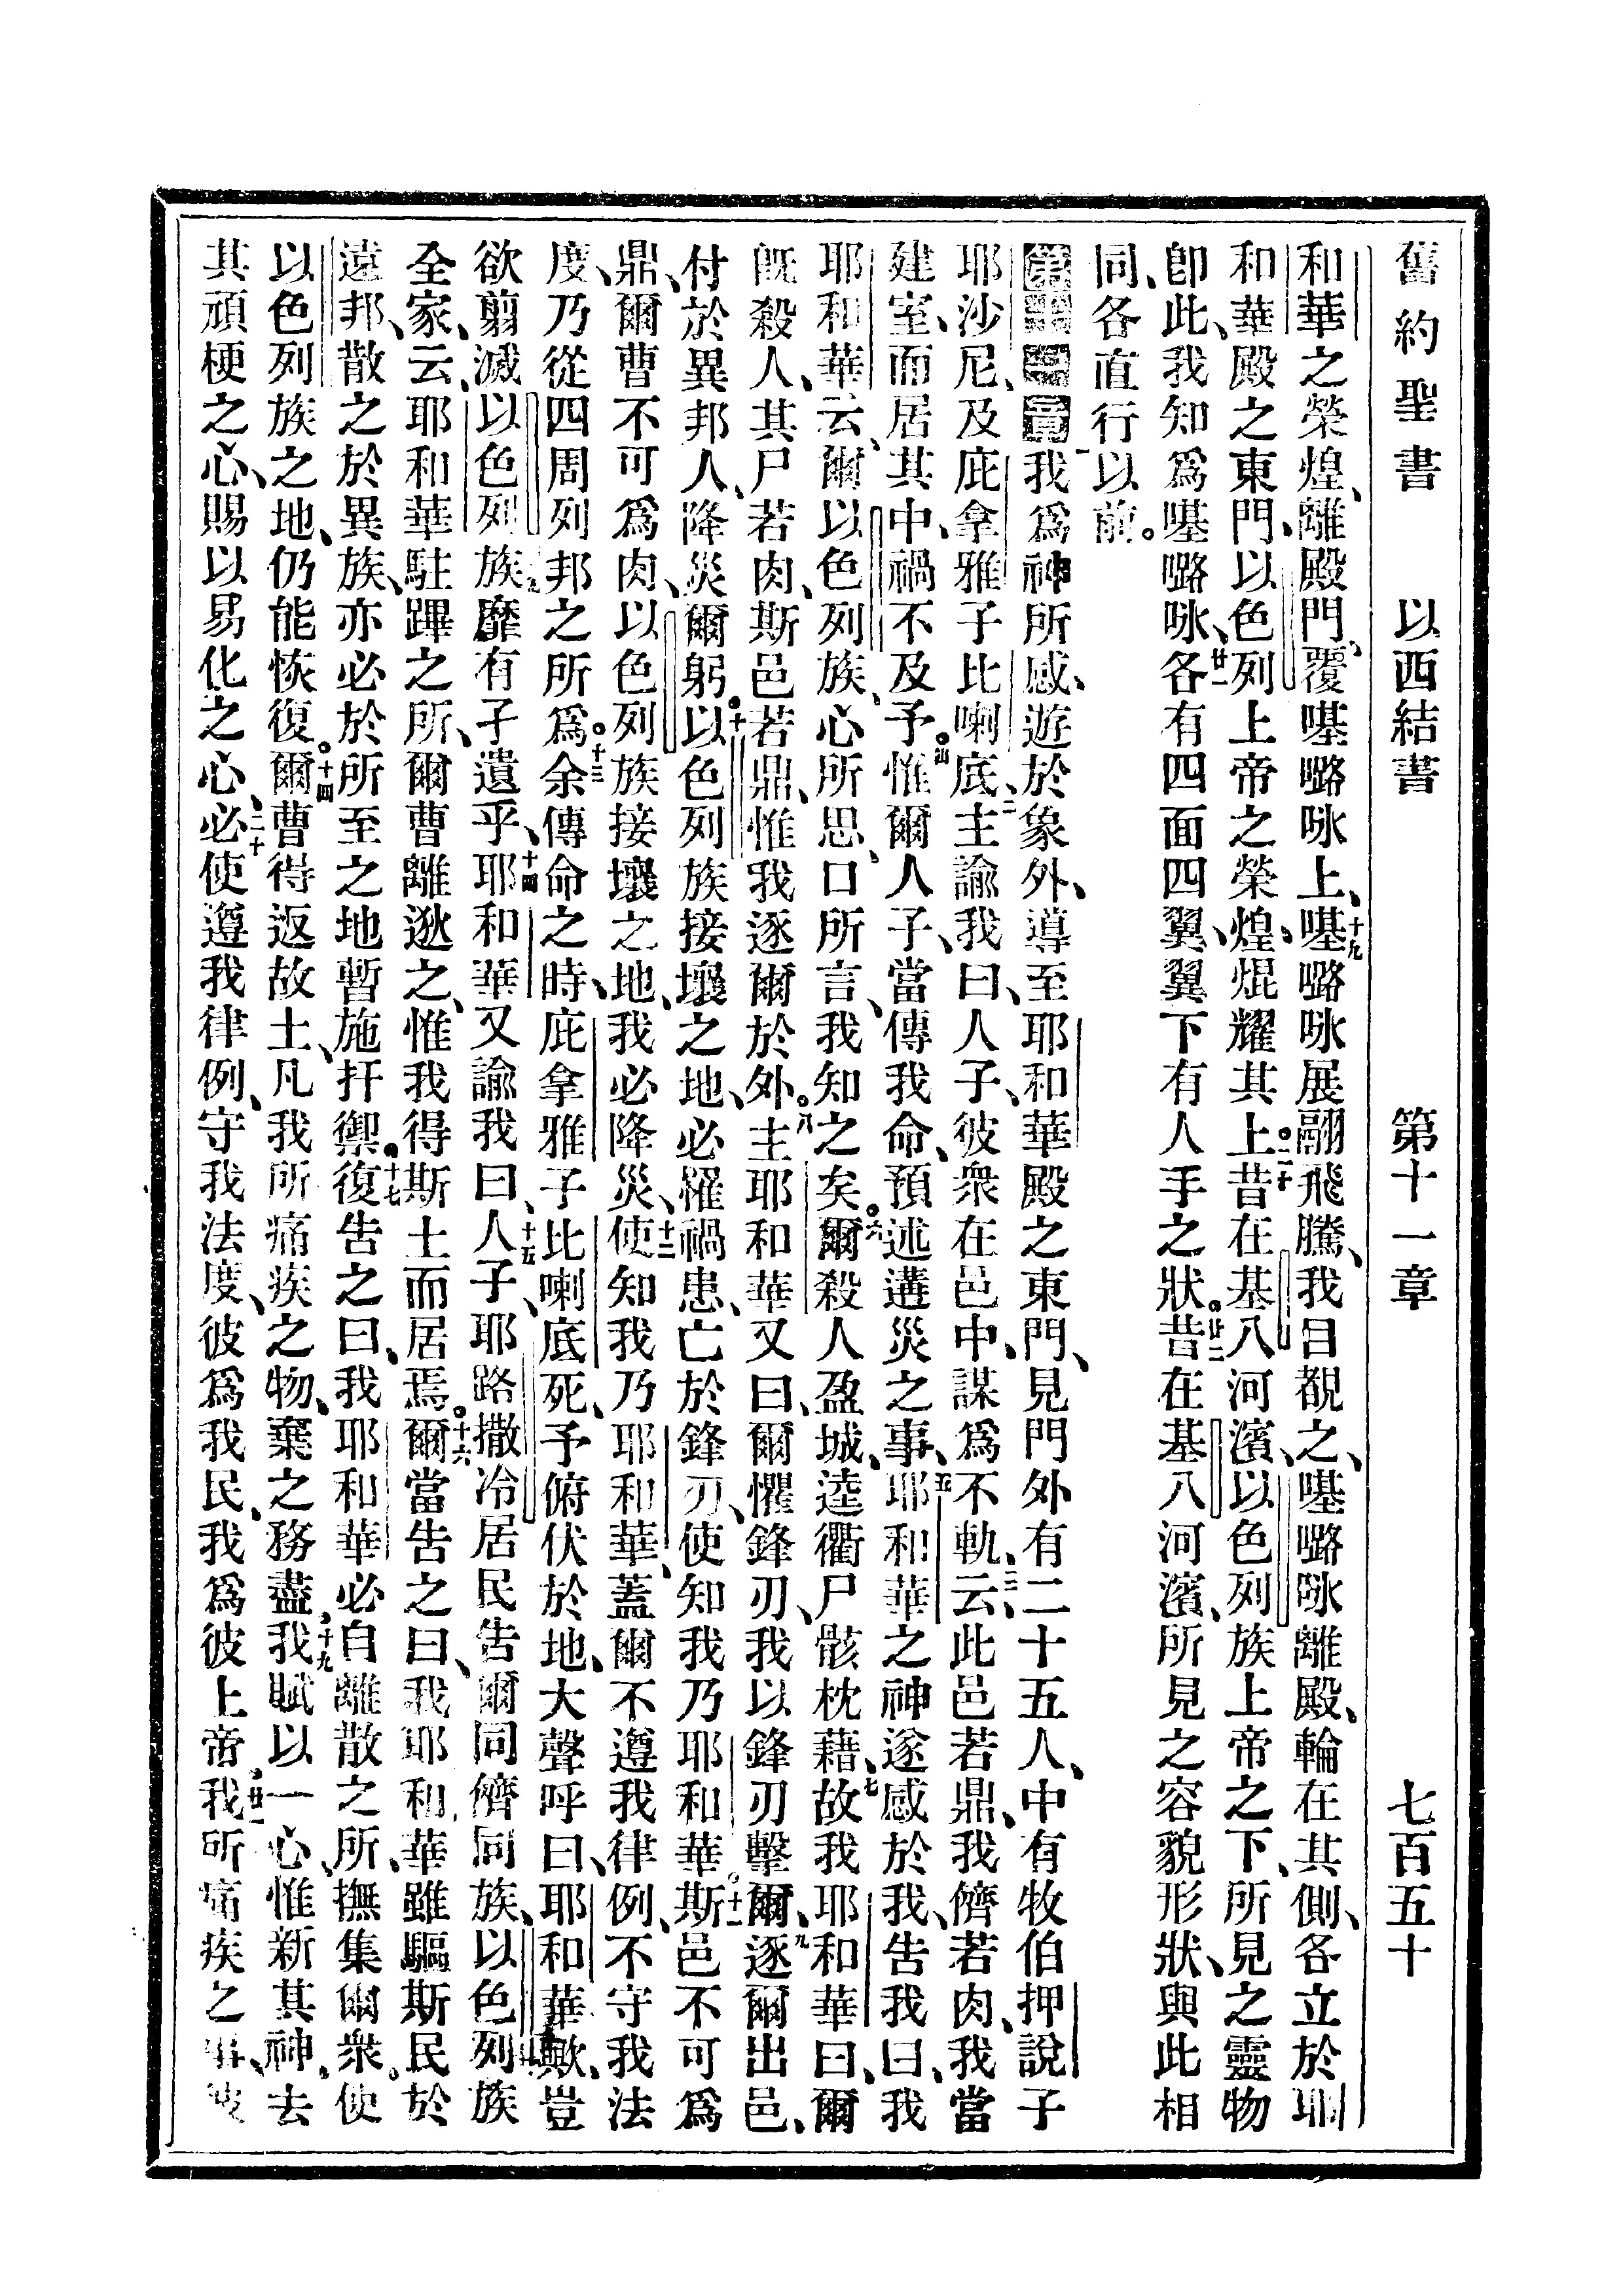 舊約聖書　以西結書　第十一章　七百五十
和華之榮煌、離殿門、覆𠼻嚕咏上、十九𠼻嚕咏展翮飛騰、我目覩之、𠼻嚕咏離殿、輪在其側、各立於耶
和華殿之東門、以色列上帝之榮煌、焜耀其上。二十昔在基八河濱、以色列族上帝之下、所見之靈物
卽此、我知爲𠼻嚕咏、廿一各有四面四翼、翼下有人手之狀。廿二昔在基八河濱、所見之容貌形狀、與此相
同、各直行以前。
第十一章一我爲神所感、遊於象外、導至耶和華殿之東門、見門外有二十五人、中有牧伯押說子
耶沙尼、及庇拿雅子比喇底、二主諭我曰、人子、彼衆在邑中、謀爲不軌、三云、此邑若鼎、我儕若肉、我當
建室、而居其中、禍不及予。四惟爾人子、當傳我命、預述遘災之事、五耶和華之神遂感於我、告我曰、我
耶和華云、爾以色列族、心所思、口所言、我知之矣。六爾殺人盈城、逵衢尸骸枕藉、七故我耶和華曰、爾
旣殺人、其尸若肉、斯邑若鼎、惟我逐爾於外。八主耶和華又曰、爾懼鋒刃、我以鋒刃擊爾、九逐爾出邑、
付於異邦人、降災爾躬。十以色列族接壤之地、必罹禍患、亡於鋒刃、使知我乃耶和華。十一斯邑不可爲
鼎、爾曹不可爲肉、以色列族接壤之地、我必降災、十二使知我乃耶和華、蓋爾不遵我律例、不守我法
度、乃從四周列邦之所爲。十三余傳命之時、庇拿雅子比喇底死、予俯伏於地、大聲呼曰、耶和華歟、豈
欲翦滅以色列族、靡有孑遺乎、十四耶和華又諭我曰、十五人子、耶路撒冷居民告爾同儕同族、以色列族
全家、云、耶和華駐蹕之所、爾曹離逖之、惟我得斯土而居焉。十六爾當告之曰、我耶和華雖驅斯民於
遠邦、散之於異族、亦必於所至之地、暫施扞禦。十七復告之曰、我耶和華必自離散之所、撫集爾衆。使
以色列族之地、仍能恢復。十四爾曹得返故土、凡我所痛疾之物、棄之務盡、十九我賦以一心、惟新其神、去
其頑梗之心、賜以易化之心、二十必使遵我律例、守我法度、彼爲我民、我爲彼上帝。廿一我所痛疾之事、彼